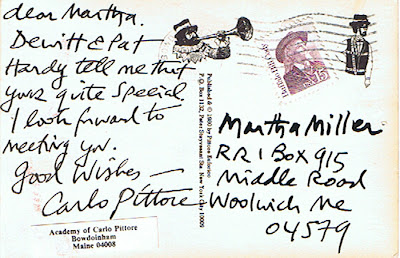 dear Martha.
Dewitt & Pat
Hardy tell me that
your quite Special
I look forward to
meeting you.
Good Wishes —
Carlo Pittore
Academy of Carlo Pittore
Bowdoinham
Maine 04008
Published & © 1980 by Pittore Euforico
P.O. Box 1132, Peter Stuyvesant Sta. New York City 10009
Martha Miller
RR 1 Box 915
Middle Road
Woolwich Me
04579